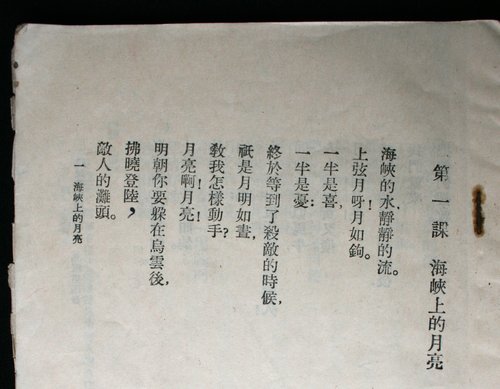 第一課　海峽上的月亮
海峽的水、靜靜的流。
上弦月呀！月如鉤。
一半是喜，
一半是憂：
終於等到了殺敵的時候，
祇是月明如晝，
教我怎樣動手？
月亮啊！月亮！
明朝你要躲在烏雲後，
拂曉登陸，
敵人的灘頭。
一　海峽上的月亮